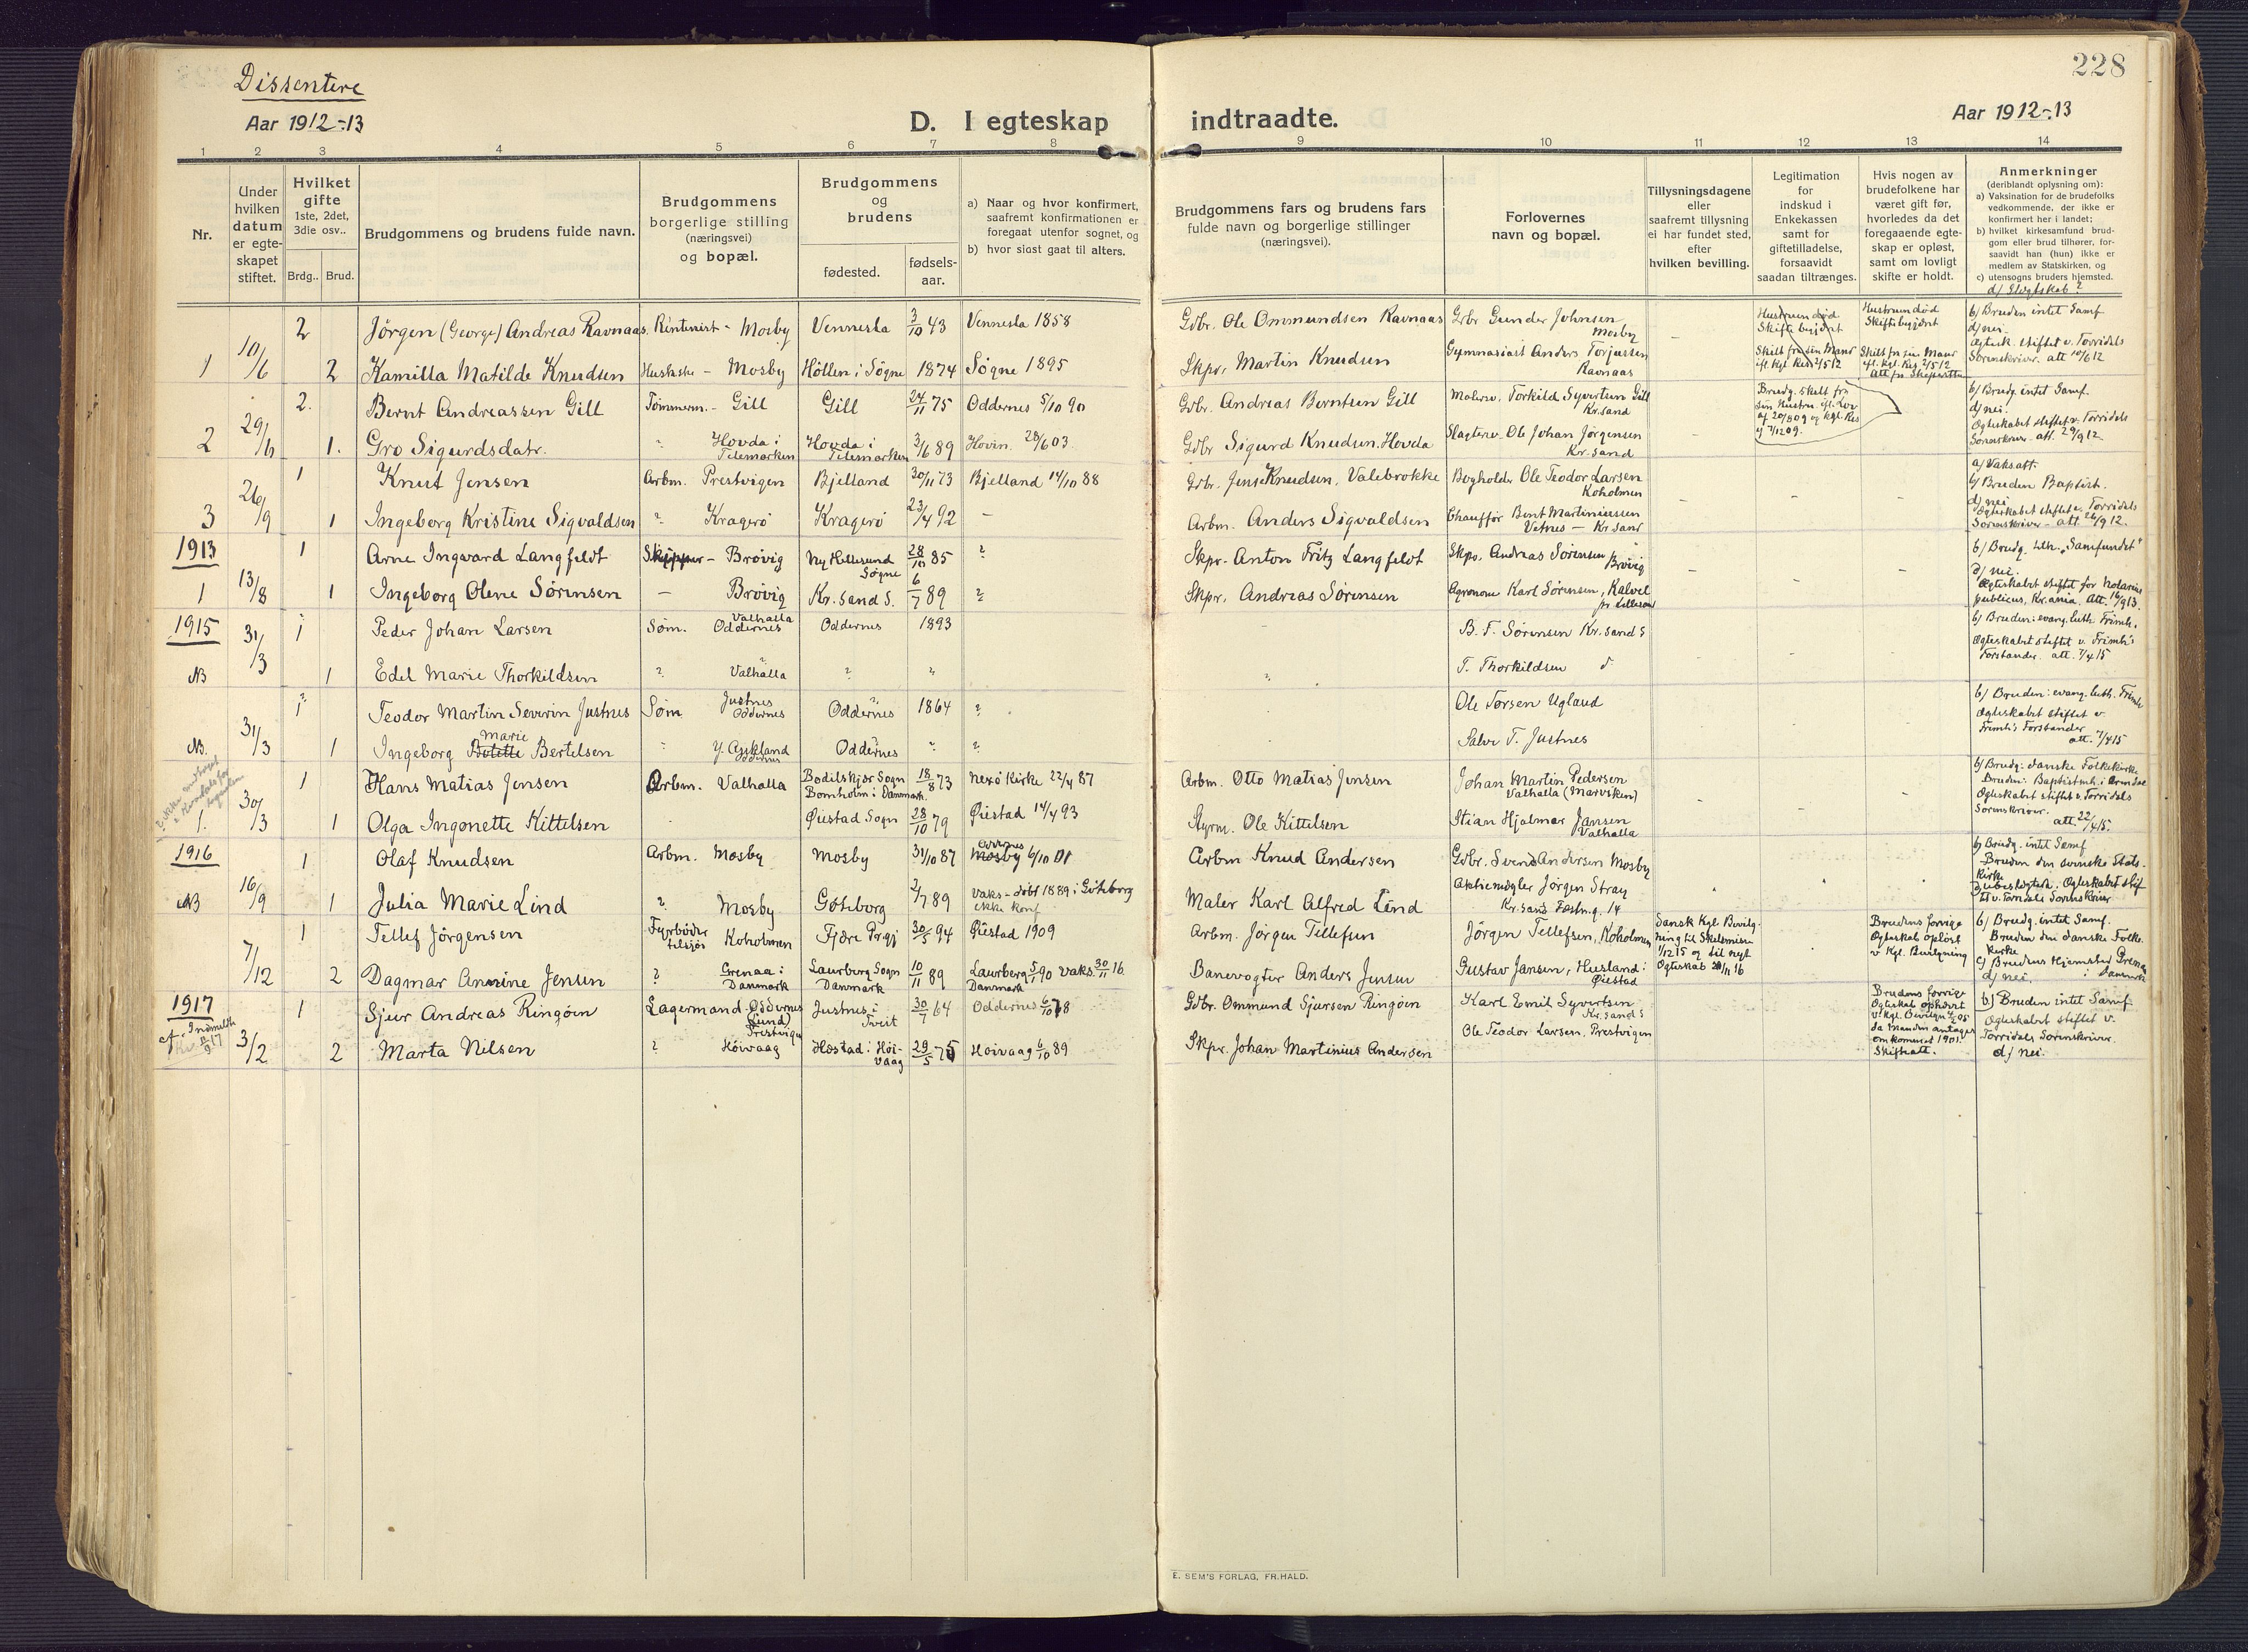 Dissentere
228
Aar 1912-13
D. I egteskap indtraadte.
Aar 1912-13
1 2 3 4 5 6 7 8 9 10 11 12 13 14
Nr.
Under hvilken datum er egte-skapet stiftet.
Hvilket gifte 1ste, 2det, 3die osv..
Brdg.. Brud.
Brudgommens og brudens fulde navn.
Brudgommens borgerlige stilling (næringsvei) og bopæl.
Brudgommens og brudens
fødested.
fødsels-aar.
a) Naar og hvor konfirmert, saafremt konfirmationen er foregaat utenfor sognet, og
b) hvor sidst gaat til alters.
Brudgommens fars og brudens fars fulde navn og borgerlige stillinger (næringsvei).
Forlovernes navn og bopæl.
Tillysningsdagene eller saafremt tillysning ei har fundet sted, efter hvilken bevilling.
Legitimation for indskud i Enkekassen samt for giftetilladelse, forsaavidt saadan tiltrænges.
Hvis nogen av brudefolkene har været gift før, hvorledes da det foregaaende egte-skap er opløst, samt om lovligt skifte er holdt.
Anmerkninger
(deriblandt oplysning om):
a) Vaksination for de brudefolks vedkommende, der ikke er konfirmert her i landet;
b) hvilket kirkesamfund brud-gom eller brud tilhører, for-saavidt han (hun) ikke er medlem av Statskirken, og
c) utensogns bruders hjemsted.
d) Slegtskab?
2 Jörgen (George) Andreas Ravnaas Rentenist - Mosby Vennesla 3/10 43 Vennesla 1858 Gdbr. Ole Ommundsen Ravnaas Gdbr Gunder Johnsen Mosby Hustruen död Skifte begjært Hustruen död Skifte begjært b) Bruden intet Samf d) nei.
1 10/6 2 Kamilla Matilde Knudsen - Mosby Höllen i Søgne 1874 Søgne 1895 Skpr. Martin Knudsen Gymnasiast Anders Torjussen Ravnaas Skilt fra sin Mand Skilt fra sin Mand Egtesk. stiftet v. Torridals Sorenskriver. att 10/6 12
2. Bernt Andreassen Gill Tømmerm. - Gill Gill 24/11 75 Oddernes 5/10 90 Gdbr. Andreas Berntsen Gill Malerm. Torkild Syvertsen Gill Kr.sand Brudg. skilt fra sin Hustru b) Brudg. intet Samf. d) nei.
2 29/6 1. Gro Sigurdsdatr. Hovda i Telemarken Hovda i Telemarken 3/6 89 Hovin 28/6 03. Gdbr Sigurd Knudsen Hovda Slagterm. Ole Johan Jørgensen Kr. sand Egteskabet stiftet v. Torridals Sorenskriver. att. 29/9 12.
1 Knut Jensen Arbm. Prestvigen Bjelland 30/11 73 Bjelland 14/10 88 Gdbr. Jens Knudsen, Valebrokke Bogholder Ole Teodor Larsen Koholmen a) Vaks.att. b) Bruden Baptist. d) nei
3 26/9 1 Ingeborg Kristine Sigvaldsen Kragerö Kragerö 23/4 92 - Arbm. Anders Sigvaldsen Chauffør Bent Martiniussen Vetnes - Kr sand Egteskabet stiftet v. Torridals Sorenskriver - att. 26/9 12.
1913 1 Arne Ingvard Langfeldt Skipper - Brøvig Ny Hellesund Søgne 28/10 85 ? Skpr. Anton Fritz Langfeldt Skpr. Andreas Sørensen Brøvig b) Brudg. tilh. "Samfundet" d) nei.
1 13/8 1 Ingeborg Olene Sørensen - Brøvig Kr. sand S. 6/7 89 ? Skpr. Andreas Sørensen Agronom Karl Sørensen, Kalvel pr Lillesand Egteskabet stiftet for Notarius publicus, Kr.ania. Att. 16/9 13.
1915 31/3 1 Peder Johan Larsen Søm. Valhalla Oddernes Oddernes 1893 B. F. Sørensen Kr.sand S b) Bruden: evang. luth. Frimh.
NB 1 Edel Marie Thorkildsen Valhalla T. Thorkildsen Egteskabet stiftet v. Frimh's Forstander. att. 7/4 15
1 Teodor Martin Severin Justnes Søm Justnes Oddernes Oddernes 1864 ? Ole Torsen Ugland b) Bruden: evang. luth. Frimh
NB. 31/3 1 Ingeborg Marie Bertelsen Y. Aukland Oddernes Oddernes ? Salve T. Justnes Egteskabet stiftet v. Frimh's Forstander att. 7/4 15
1 Hans Matias Jensen Arbm. Valhalla Bodilskjær Sogn Bornholm i Danmark. 18/8 73 Nexö Kirke 22/4 87 Arbm. Otto Matias Jensen Johan Martin Pedersen Valhalla (Marviken) b) Brudg: danske Folkekirke Bruden: Baptistmh. i Arendal
1. 30/3 1 Olga Ingonette Kittelsen Øiestad Sogn 28/10 79 Øiestad 14/4 93 Styrm. Ole Kittelsen Stian Hjalmar Jansen Valhalla Egteskabet stiftet v. Torridals Sorenskriver. att. 22/4 15.
1916 1 Olaf Knudsen Arbm. Mosby Mosby 31/10 87 Oddernes 6/10 01 Arbm Knud Andersen Gdbr. Svend Andersen Mosby b) Brudg. intet Samf Bruden den svenske Stats-kirke
NB 16/9 1 Julia Marie Lind Mosby Göteborg 2/7 89 Vaks - döbt 1889 i Göteborg ikke konf Maler Karl Alfred Lind Aktiemegler Jørgen Stray Kr. sand Fæstn.g. 14
7/12 1 Tellef Jörgensen Fyrbøder tilsjøs Koholmen Fjære Prgj 30/5 94 Øiestad 1909 Arbm. Jørgen Tellefsen Jörgen Tellefsen, Koholmen Dansk Kgl. Bevilgning til Skilsmisse 1/12 15 og til nyt Egteskab Brudens forrige Egteskab opløst v Kgl. Bevilgning b) Brudg. intet Samf. Bruden den danske Folke-kirke
2 Dagmar Annine Jensen Grenaa i Danmark Laurberg Sogn Danmark 10/11 89 Laurberg 5/90 Vaks. 30/11 16. Danmark Banevogter Anders Jensen Gustav Jansen, Husland i Øiestad c) Brudens Hjemsted Grenaa i Danmark d) nei.
1917 1 Sjur Andreas Ringøin Lagermand. Oddernes (Lund) Prestvigen Justnes i Tveit 30/7 64 Oddernes 6/10 78 Gdbr. Ommund Sjursen Ringöin Karl Emil Syvertsen Kr.sand S Brudens forrige Egteskab ophævet da Manden antages omkommet 1901. Skifteatt. b) Bruden intet Samf. Egteskabet stiftet v. Torridals Sorenskriver. d) nei.
3/2 2 Marta Nilsen Höivaag Hæstad i Høi-vaag 29/5 75 Høivaag 6/10 89 Skpr. Johan Martinius Andersen Ole Teodor Larsen, Prestvigen
E. SEM'S FORLAG, FR.HALD.